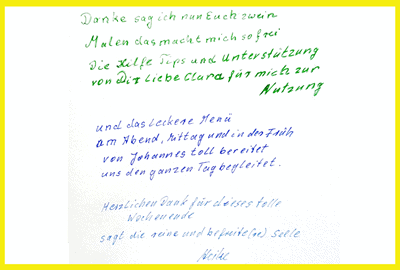 Danke sag ich nun Euch zwein
Malen das macht mich so frei
Die Hilfe Tips und Unterstützung
von Dir liebe Clara für mich zur
Nutzung
und das leckere Menü
am Abend, Mittag und in der Früh
von Johannes toll bereitet
uns den ganzen Tag begleitet.
Herzlichen Dank für dieses tolle
Wochenende
sagt die reine und befreite(re) Seele
Heike